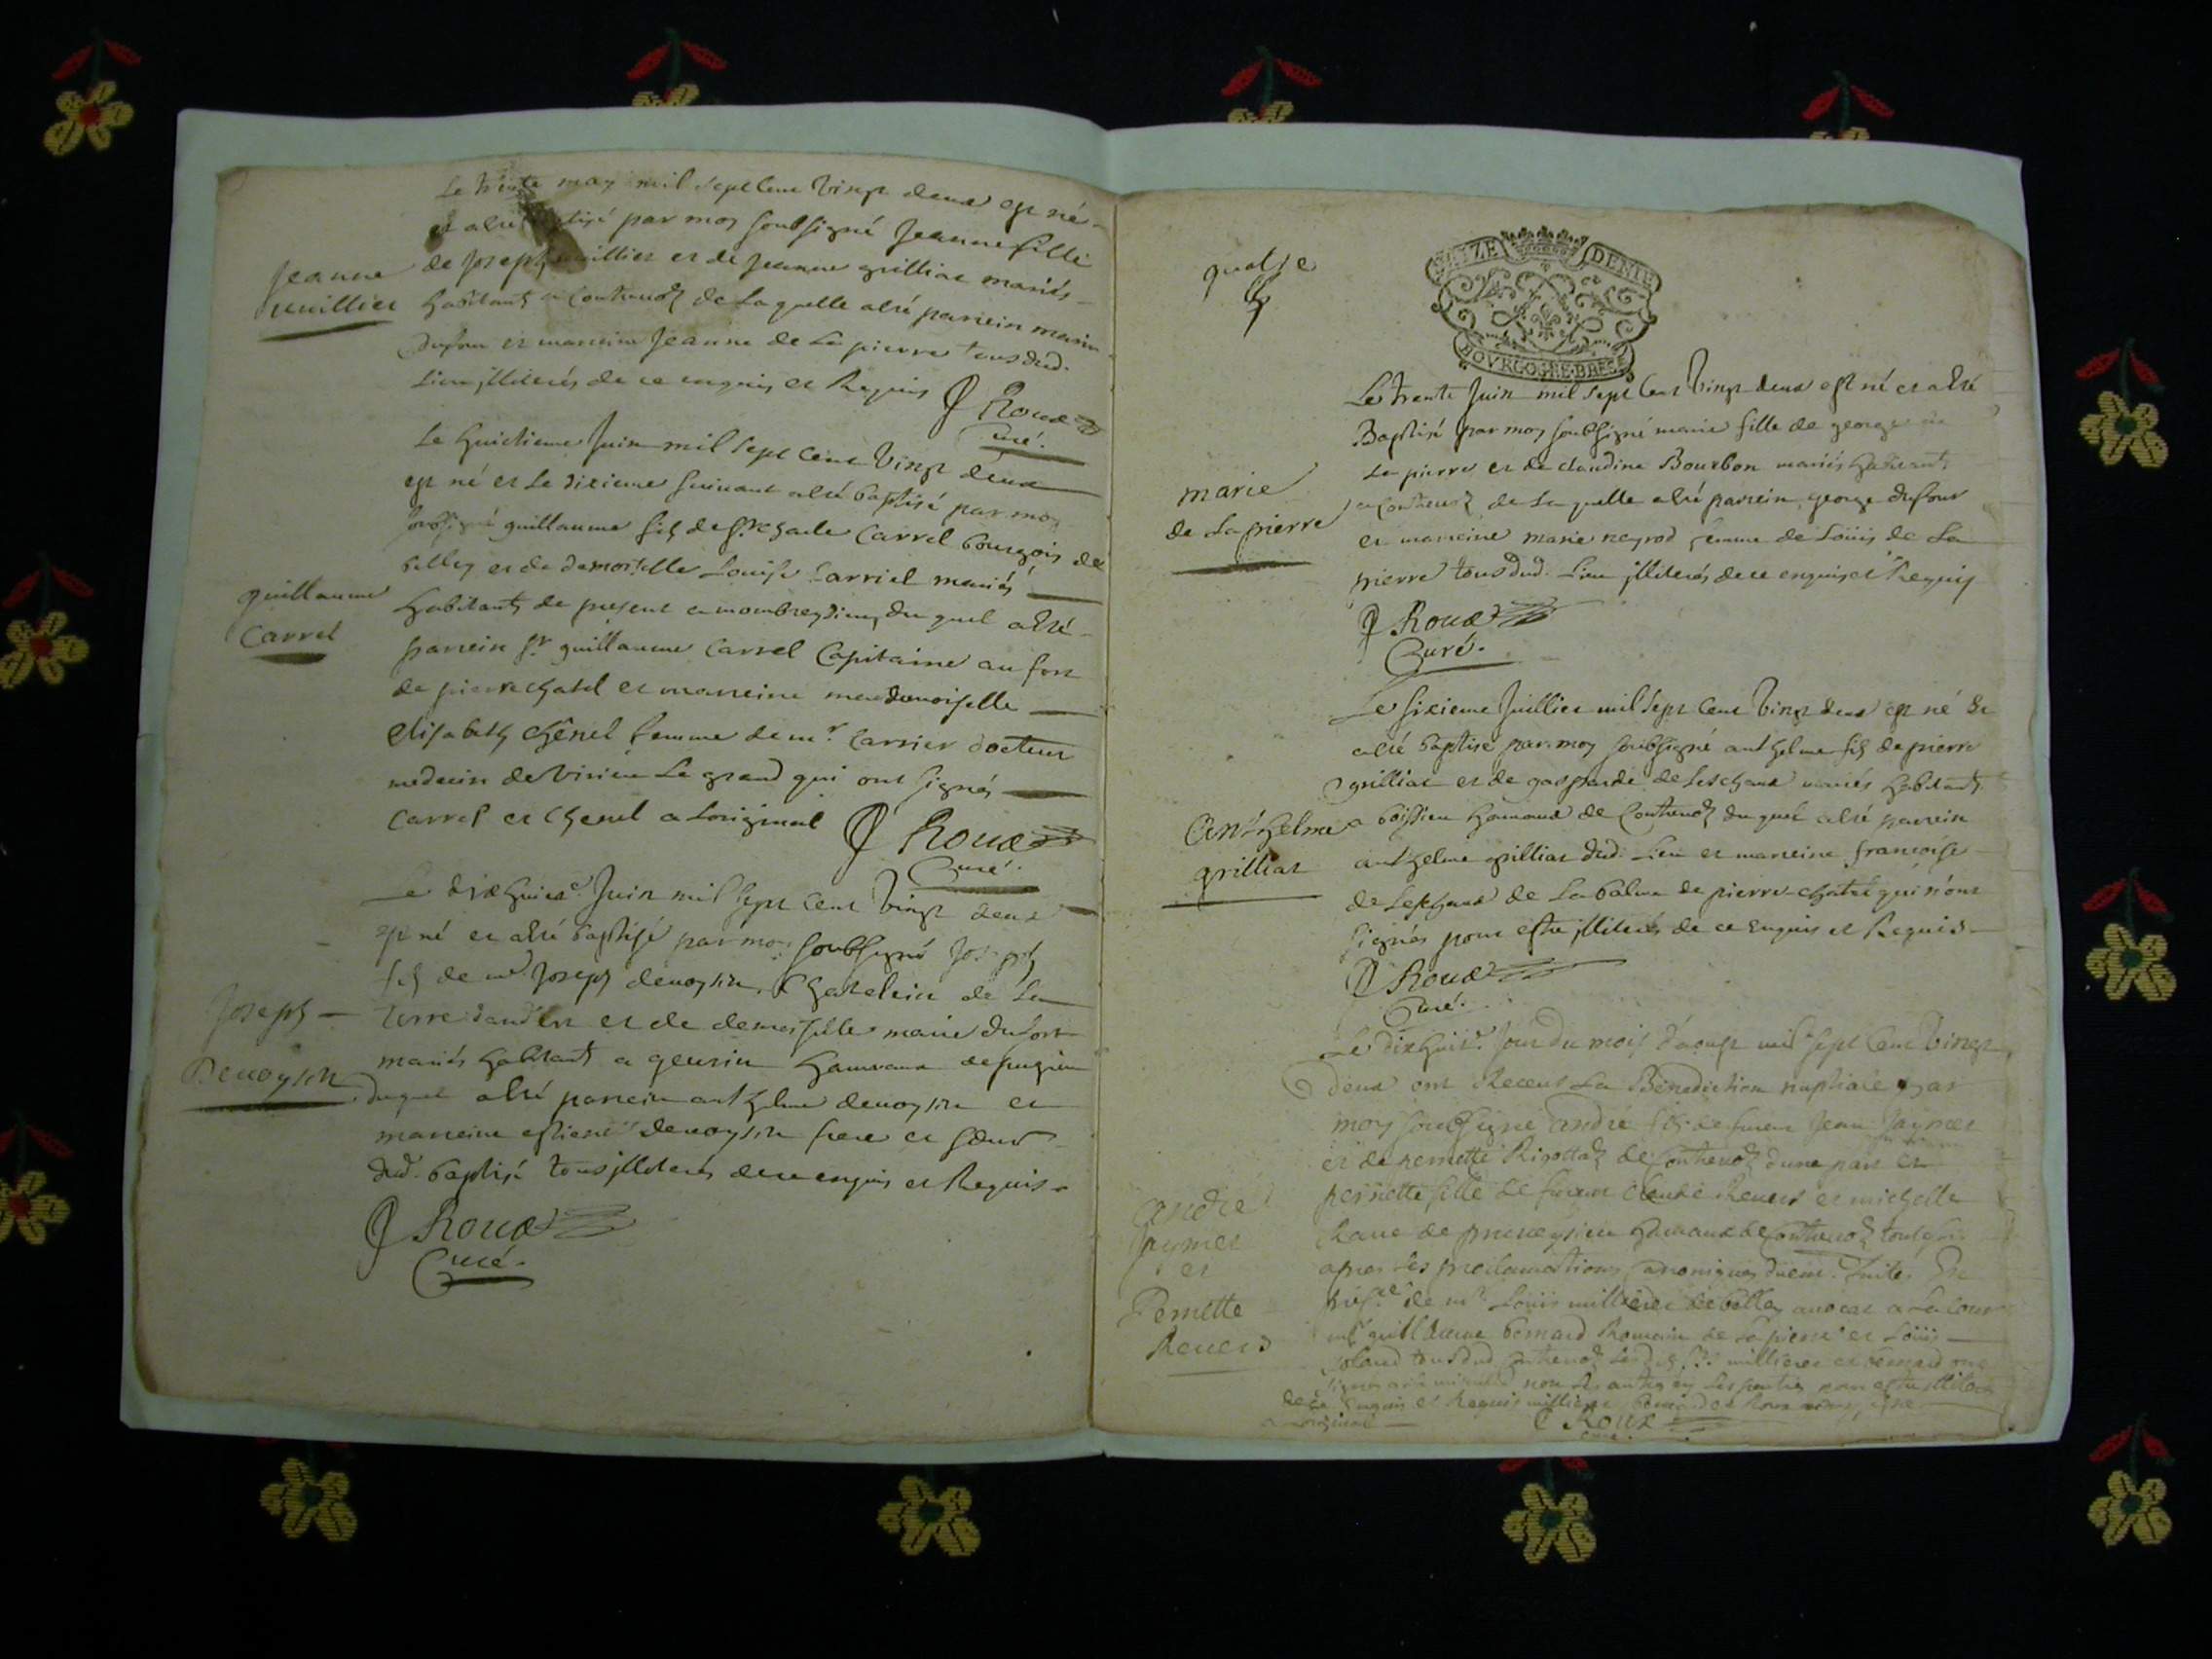 Le trente may mil sept cent vingt deux est né
et a été baptisé par moy soubsigné Jeanne fille
Jeanne
Juuillier
de Joseph Juuillier et de Jeanne grilliat mariés
habitants a Contreuoz de laquelle a été parrein marin
dufour et marreine Jeanne de la pierre tous dud.
Lieu illiterés de ce enquis et Requis J Roux
Curé.
Le huictieme Juin mil sept cent vingt deux
est né et le dixieme suivant a été baptisé par moy
soubsigné guillaume fils de sr charle Carrel bourgois de
belley et de demoiselle Louise Carriel mariés
guillaume
Carrel
habitants de present a mombreysieu, du quel a été
parrein sr guillaume Carrel Capitaine au fort
de pierre chatel et marreine mademoiselle
elisabeth chênel femme de mr. Carrier docteur
medecin de virieu le grand qui ont signés
Carrel et chenel a Loriginal J Roux
Curé.
Le dixhuite Juin mil sept cent vingt deux
est né et a été baptisé par moy soubsigné Joseph
fils de me. Joseph deuoysin, Chatelain de la
Joseph
Deuoysin
terre dandert et de demoiselle marie dufort
mariés habitants a geurin hameau de pugieu
duquel a été parrein anthelme deuoysin et
marreine estiennte deuoysin frere et soeur
dud. baptisé tous illiterés de ce enquis et Requis
J Roux
Curé.
quatre
4
SEIZE DENIE
BOVRGOGNE BRESSE
Le trente Juin mil sept cent vingt deux est né et a été
Baptisé par moy soubsigné marie fille de george de
La pierre et de claudine Bourbon mariés habitants
marie
de Lapierre
a Contreuoz de Laquelle a été parrein george dufour
et marreine marie neyrod femme de Loüis de La
pierre tous dud. Lieu illiterés de ce enquis et Requis
J Roux
Curé.
Le sixieme Juillier mil sept cent vingt deux est né et
a été baptisé par moy soubsigné anthelme fils de pierre
grilliat et de gasparde de Leschaux mariés habitants
Anthelme
grilliat
a boissieu hameaux de Contreuoz du quel a été parrein
anthelme grilliat dud. Lieu et marreine françoise
de Leschaux de La balme de pierre-chatel qui n'ont
signés pour estre illiterés de ce Enquis et Requis
J Roux
Curé.
Le dixhuite. Jour du mois d'aoust mil sept cent vingt
deux ont Receus La Benediction nuptiale par
moy soubsigné andré fils de feu Jean Jaymet
et de pernette Rigottaz de Contreuoz d'une part et
André
Jaymet
et
Pernette
Reuers
pernette fille de feu Claude Reuers et michelle
de preueysieu hameaux de Contreuoz
apres les proclamations Canoniques duëm. faites En
de mr. Loüis millieret de belley auocat a La Cour
guillaume bernard Romain de La pierre et Loüis
tous dud. Contreuoz
non Les autres ny Les parties pour estre illiterés
de ce Enquis et Requis
a Loriginal J Roux
Curé.